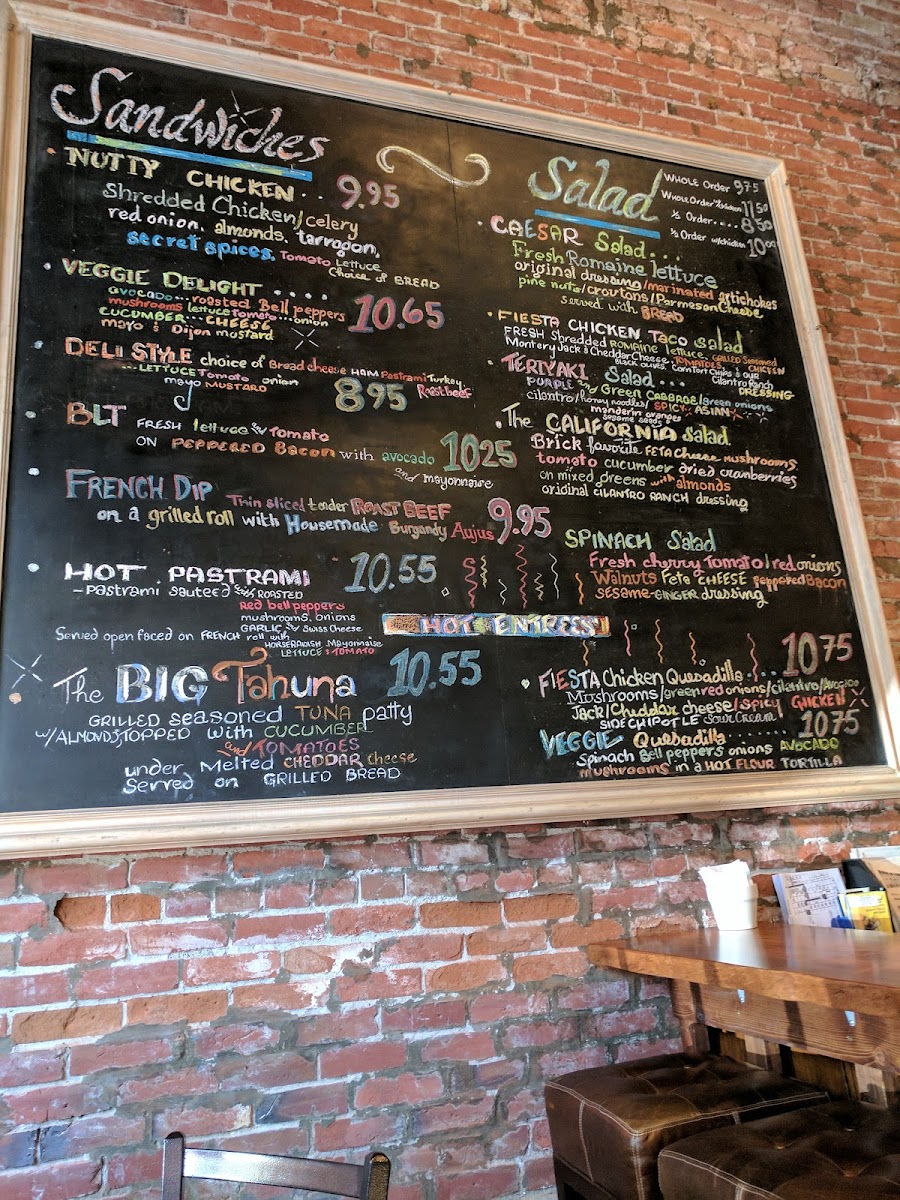 Sandwiches
NUTTY CHICKEN . . 9.95
Shredded Chicken/celery
red onion, almonds, tarragon,
secret spices, Tomato Lettuce
Choice of BREAD
VEGGIE DELIGHT . . . . 10.65
avocado... roasted Bell peppers
mushrooms lettuce tomato....onion
CUCUMBER... CHEESE
mayo & Dijon mustard
DELI STYLE choice of Bread cheese HAM Pastrami Turkey
...LETTUCE Tomato onion Roast beef
mayo MUSTARD 8.95
BLT FRESH lettuce & Tomato
ON PEPPERED Bacon with avocado 10.25
and mayonnaise
FRENCH DIP Thin sliced tender ROAST BEEF 9.95
on a grilled roll with Housemade Burgandy Aujus
HOT PASTRAMI 10.55
-pastrami sauteed with ROASTED
Red bell peppers
mushrooms, onions
GARLIC & Swiss Cheese
Served open faced on FRENCH roll with
HORSERADISH Mayonnaise
LETTUCE & TOMATO
The BIG Tahuna 10.55
GRILLED seasoned TUNA patty
w/ALMONDS, TOPPED with CUCUMBER
and TOMATOES
under Melted CHEDDAR cheese
Served on GRILLED BREAD
Salad
WHOLE Order 9.75
Whole Order w/chicken 11.50
½ Order..... 8.50
½ Order w/chicken 10.00
CAESAR Salad . . .
Fresh Romaine lettuce
original dressing/marinated artichokes
pine nuts/croutons/Parmesan Cheese
served with BREAD
FIESTA CHICKEN Taco Salad
FRESH Shredded ROMAINE lettuce, GRILLED Seasoned CHICKEN
Montery Jack & Cheddar Cheese, TOMATOES,
BLACK OLIVES, Corn Tort Chips & our
Cilantro Ranch DRESSING
TERIYAKI Salad . . .
PURPLE and Green CABBAGE/green onions
cilantro/honey noodles/ SPICY ASIAN
manderin oranges
sesame seeds
The CALIFORNIA Salad.
Brick favorite FETA Cheese mushrooms
tomato cucumber dried cranberries
on mixed greens with almonds
original CILANTRO RANCH dressing
SPINACH Salad
Fresh cherry Tomato/red onions
Walnuts Feta CHEESE peppered Bacon
SESAME-GINGER dressing
HOT ENTREES
FIESTA Chicken Quesadilla... 10.75
Mushrooms/green red onions/cilantro/Avocado
Jack/Cheddar cheese/spicy CHICKEN
SIDE CHIPOTLE Sour Cream
VEGGIE Quesadilla........ 10.75
Spinach Bell peppers onions AVOCADO
mushrooms in a HOT FLOUR TORTILLA